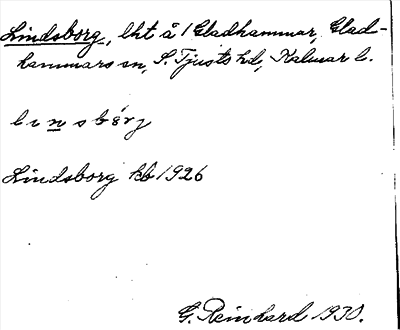 Lindsborg, lht å 1 Gladhammar, Glad-
hammars sn, S. Tjusts hd, Kalmar l.
linsbǿrj
Lindsborg kb 1926
G. Reinhard 1930.